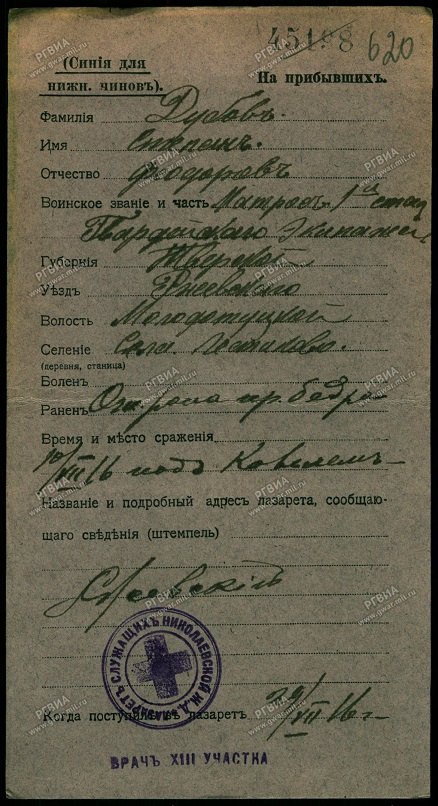 45198 620
(Синія для
нижн. чиновъ).
На прибывшихъ.
Фамилія Дубовъ.
Имя Степанъ.
Отчество Феодоровъ
Воинское званіе и часть Матросъ 1й стат
Гвардейскаго Экипажа
Губернія Тверской
Уѣздъ Ржевскаго
Волость Молодотудской
Селеніе Села
(деревня, станица)
Боленъ
Раненъ Огн. рана пр. бедра
Время и мѣсто сраженія
VII 16 подъ Ковелемъ
Названіе и подробный адресъ лазарета, сообщаю-
щаго свѣдѣнія (штемпель)
ЛАЗАРЕТЪ СЛУЖАЩИХЪ НИКОЛАЕВСКОЙ Ж.Д.
Когда поступилъ въ лазаретъ 29/VII 16 г.
ВРАЧЪ XIII УЧАСТКА
РГВИА
www.gwar.mil.ru